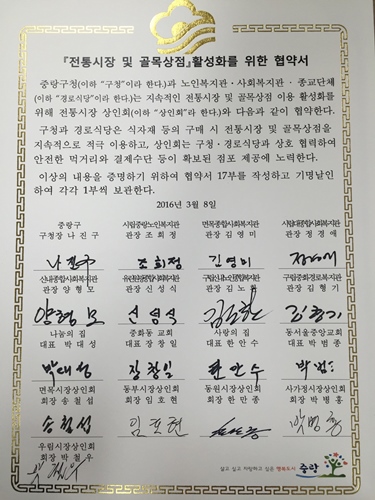 『전통시장 및 골목상점』활성화를 위한 협약서
중랑구청(이하 "구청"이라 한다)과 노인복지관·사회복지관·종교단체
(이하 "경로식당"이라 한다)는 지속적인 전통시장 및 골목상점 이용 활성화를
위해 전통시장 상인회(이하 "상인회"라 한다)와 다음과 같이 협약한다.
구청과 경로식당은 식자재 등의 구매 시 전통시장 및 골목상점을
지속적으로 적극 이용하고, 상인회는 구청·경로식당과 상호 협력하여
안전한 먹거리와 결제수단 등이 확보된 점포 제공에 노력한다.
이상의 내용을 증명하기 위하여 협약서 17부를 작성하고 기명날인
하여 각각 1부씩 보관한다.
2016년 3월 8일
중랑구 시립중랑노인복지관 면목종합사회복지관 시립대종합사회복지관
구청장 나진구 관장 조희정 관장 김영미 관장 정경애
나진구 조희정 김영미
신내종합사회복지관 유린원광종합사회복지관 구립신내노인종합복지관 구립중화경로복지관
관장 양형모 관장 신성식 관장 김노 관장 김형기
양형모
나눔의 집 중화동 교회 사랑의 집 동서울중앙교회
대표 박대성 대표 장창일 대표 한안수 대표 박범종
박대성 장창일 한안수
면목시장상인회 동부시장상인회 동원시장상인회 사가정시장상인회
회장 송철섭 회장 임호현 회장 한만종 회장 박병홍
송철섭 임호현
우림시장상인회
회장 박철우
살고 싶고 자랑하고 싶은 행복도시 중랑